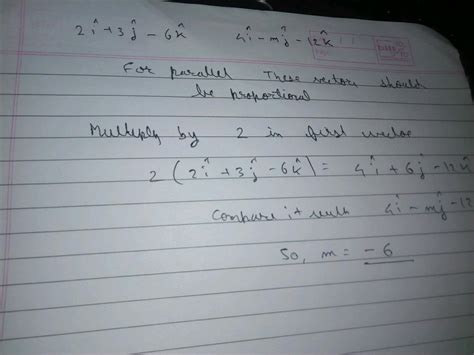 2î + 3ĵ - 6k̂    4î - mĵ - 12k̂
For parallel These vectors should
be proportional
Multiply by 2 in first vector
2 ( 2î + 3ĵ - 6k̂ ) = 4î + 6ĵ - 12k̂
Compare it with 4î - mĵ - 12
So, m = - 6